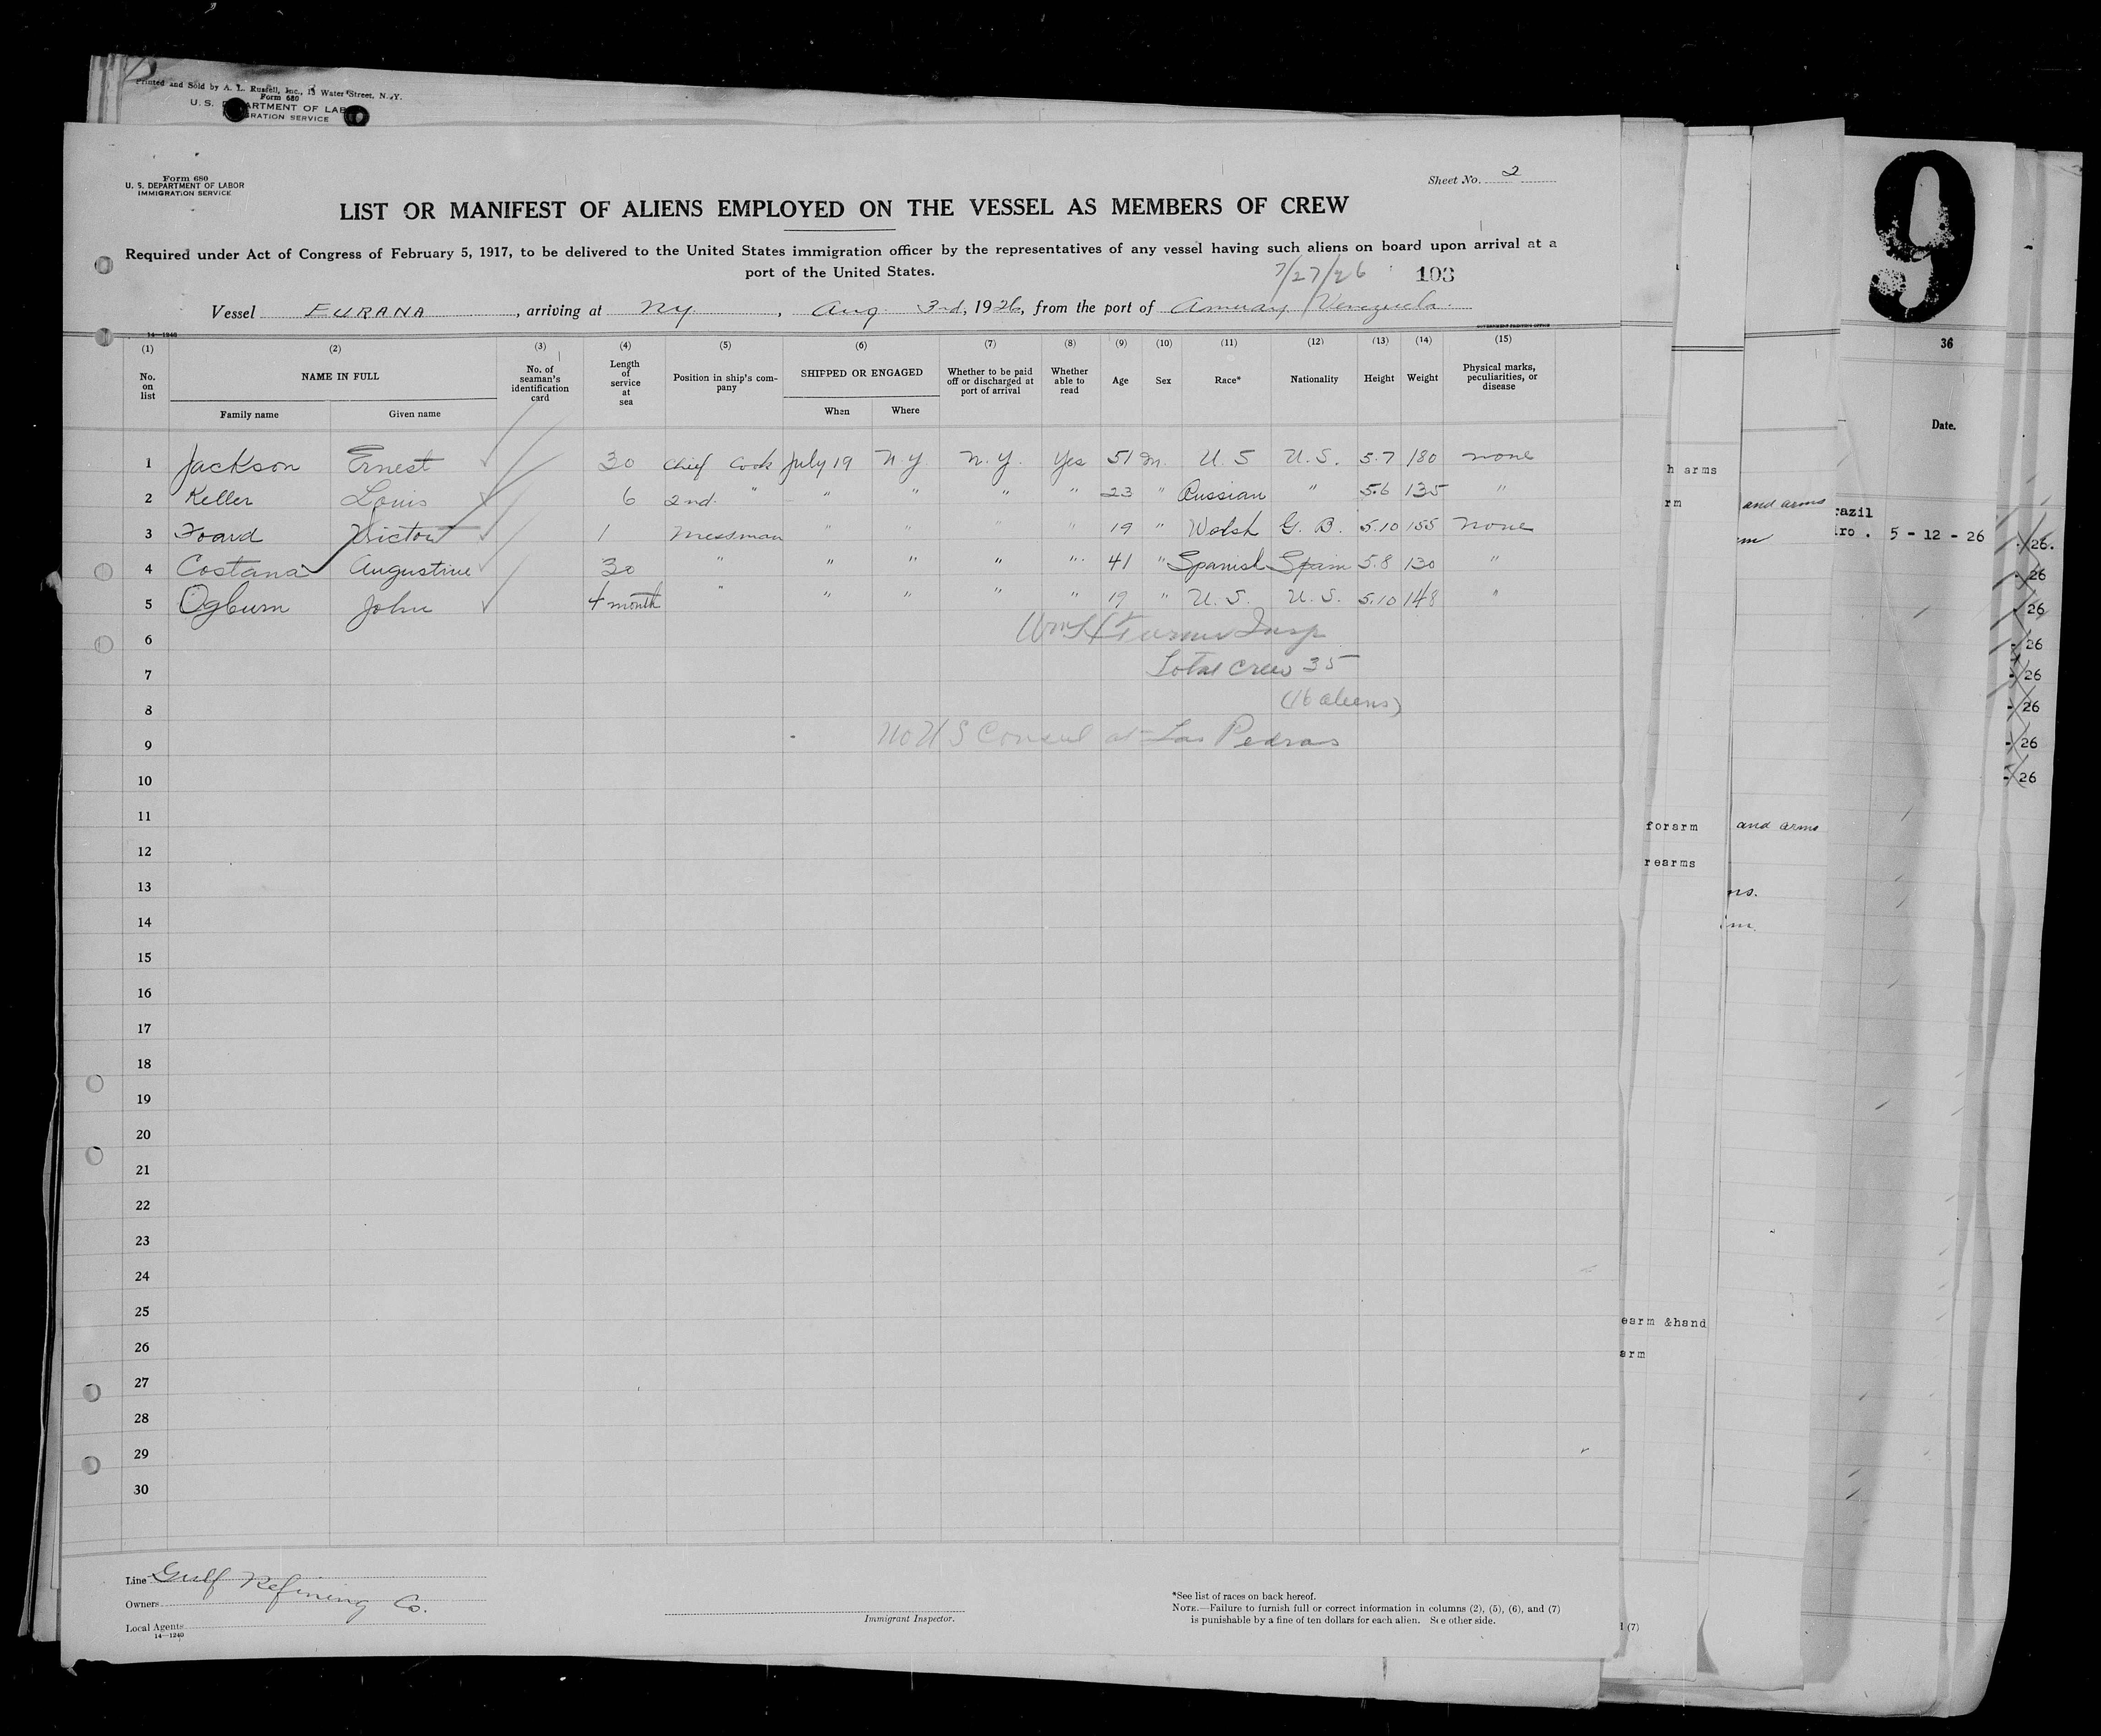 Printed and Sold by A. L. Russell, Inc., 13 Water Street, N. Y.
Form 680
U. S. DEPARTMENT OF LAB
GRATION SERVICE
Form 680
U. S. DEPARTMENT OF LABOR
IMMIGRATION SERVICE
Sheet No. 2
LIST OR MANIFEST OF ALIENS EMPLOYED ON THE VESSEL AS MEMBERS OF CREW
Required under Act of Congress of February 5, 1917, to be delivered to the United States immigration officer by the representatives of any vessel having such aliens on board upon arrival at a
port of the United States.
7/27/26 103
Vessel EURANA, arriving at NY, Aug 3rd, 1926, from the port of Amuay Venezuela.
14—1240 GOVERNMENT PRINTING OFFICE
(1) (2) (3) (4) (5) (6) (7) (8) (9) (10) (11) (12) (13) (14) (15)
No. on list NAME IN FULL No. of seaman's identification card Length of service at sea Position in ship's company SHIPPED OR ENGAGED Whether to be paid off or discharged at port of arrival Whether able to read Age Sex Race* Nationality Height Weight Physical marks, peculiarities, or disease
Family name Given name When Where
1 Jackson Ernest 30 Chief Cook July 19 N Y N. Y. Yes 51 M. U. S U. S. 5.7 180 none
2 Keller Louis 6 2nd. " " " " " 23 " Russian " 5.6 135 "
3 Foard Victor 1 Messman " " " " 19 " Welsh G. B. 5.10 155 none
4 Costana Augustine 30 " " " " " 41 " Spanish Spain 5.8 130 "
5 Ogburn John 4 month " " " " " 19 " U. S. U. S. 5.10 148 "
6 Insp
7 Total Crew 35
8 (16 aliens)
9 No U S Consul at Las Pedras
10
11
12
13
14
15
16
17
18
19
20
21
22
23
24
25
26
27
28
29
30
Line Gulf Refining Co.
Owners
Local Agents
14—1240
Immigrant Inspector.
*See list of races on back hereof.
NOTE.—Failure to furnish full or correct information in columns (2), (5), (6), and (7)
is punishable by a fine of ten dollars for each alien. See other side.
h arms
rm
forarm
rearms
earm &hand
arm
(7)
and arms
and arms
9
36
Date.
razil
iro . 5 - 12 - 26
26.
- 26
26
- 26
- 26
- 26
- 26
- 26